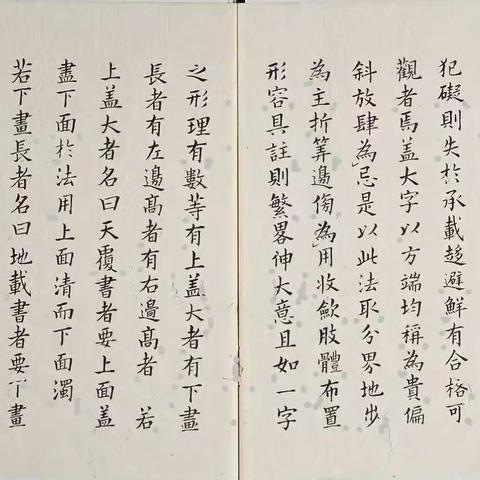 犯礙則失於承載趍避鮮有合格可
觀者焉盖大字以方端均稱為貴偏
斜放肆為忌是以此法取分界地步
為主折筭邊傍為用收歛肢體布置
形容具註則繁畧伸大意且如一字
之形理有數等有上盖大者有下畫
長者有左邊髙者有右邊髙者 若
上盖大者名曰天覆書者要上面盖
盡下面於法用上面清而下面濁
若下畫長者名曰地載書者要下畫